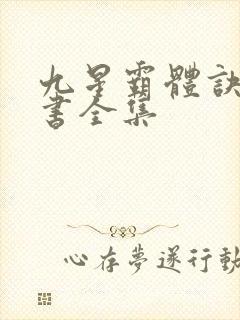 九星霸體訣
書全集
心存夢遂行動